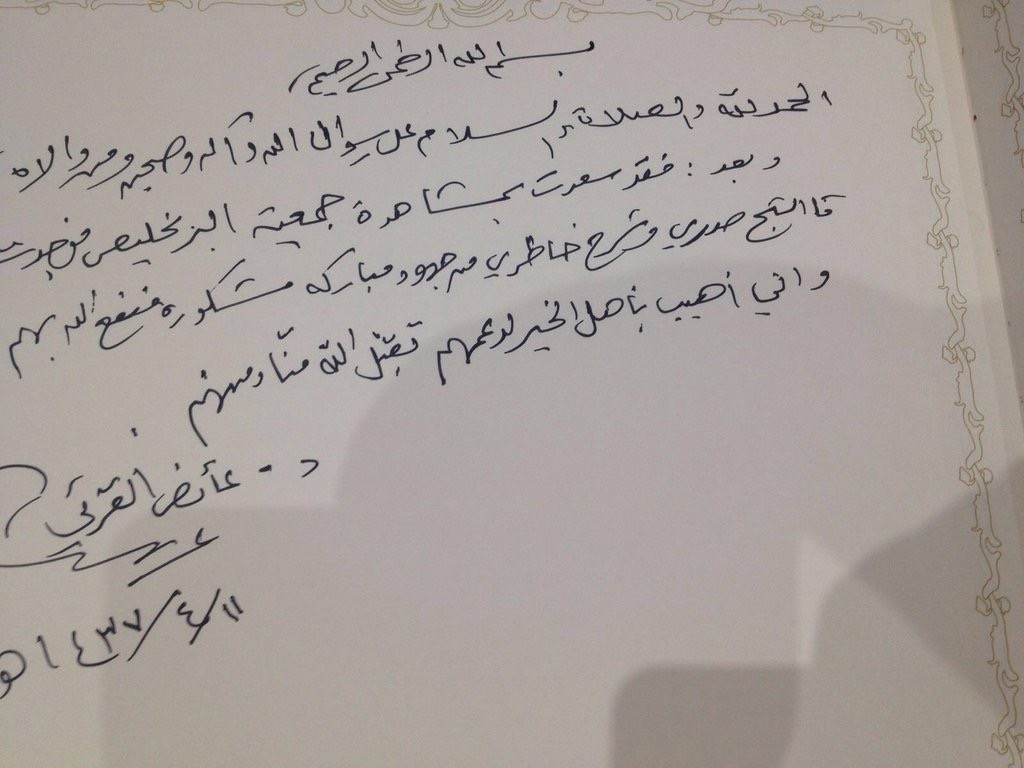 بسم الله الرحمن الرحيم
الحمد لله والصلاة والسلام على رسول الله وآله وصحبه ومن والاه
وبعد : فقد سعدت بمشاهدة جمعية البر بخليص فوجدت
ما أثلج صدري وشرح خاطري من جهود مباركه مشكوره فنفع الله بهم
واني أهيب بأهل الخير لدعمهم تقبّل الله منّا ومنهم
د . عائض القرني
١١/٤/١٤٣٧هـ